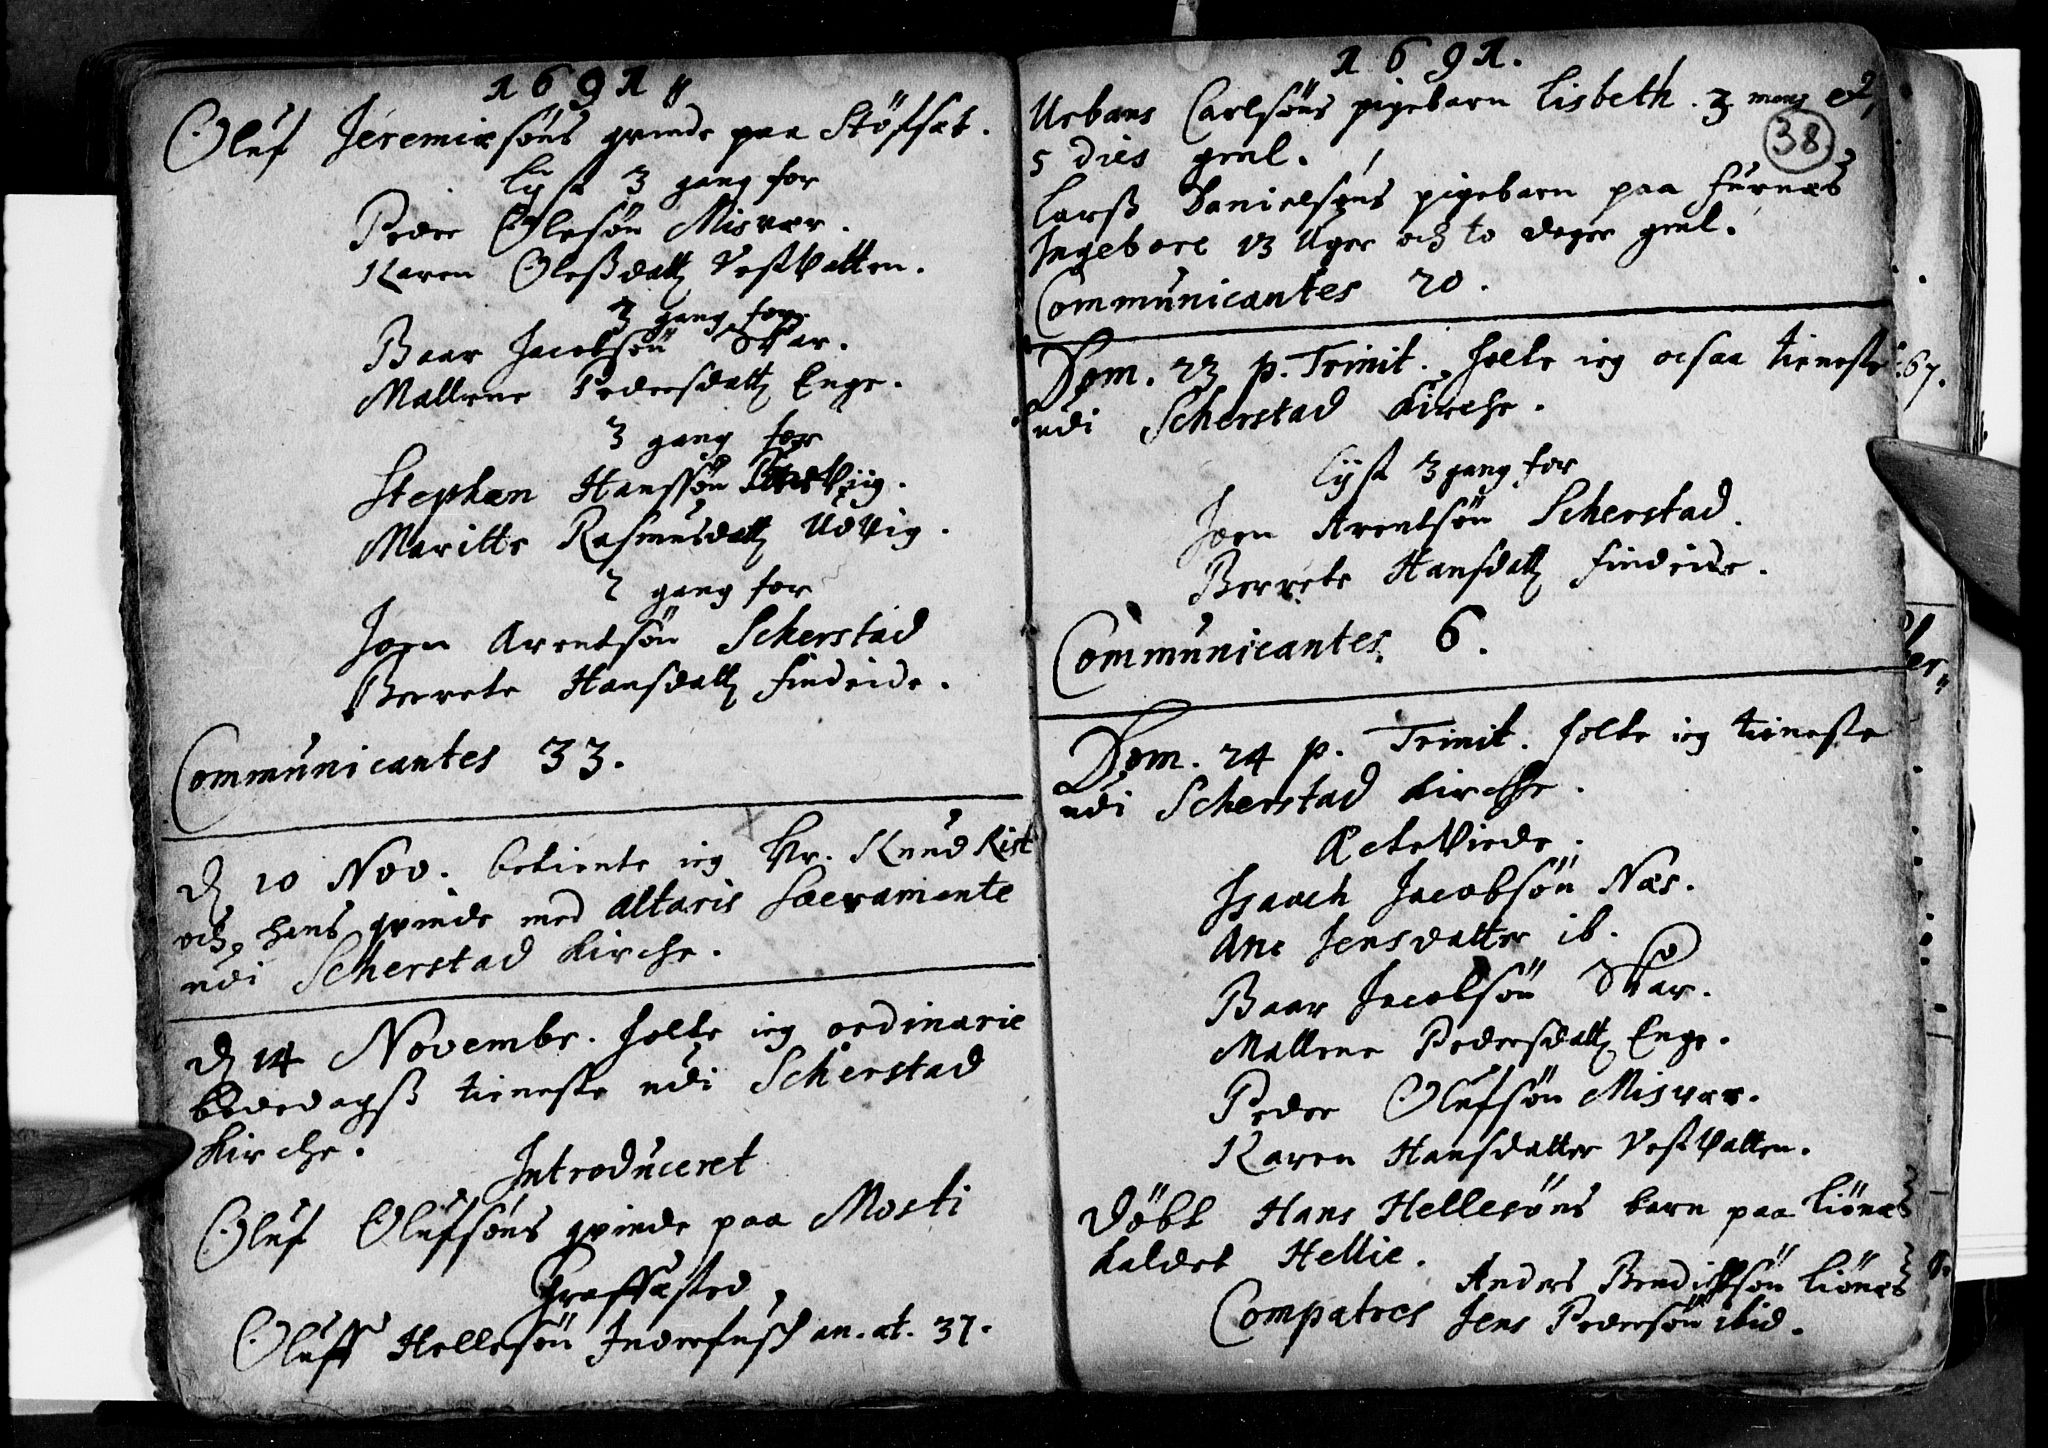 1691
Oluf Jeremiæsøns qvinde paa Støfset.
Lyst 3 gang for
Peder Olesøn Misvær.
Karen Oleßdatt Vestvatten.
3 gang for
Baar Jacobsøn Skar.
Mallene Pedersdatt Enge.
3 gang for
Stephen Hanssøn
Maritte Rasmusdatt Udvig.
2 gang for
Joen Arentsøn Scherstad
Berrete Hansdatt Findeide.
Communicantes 33.
D 10 Nov. betiente ieg Hr. Knud Rist
och hans qvinde med altaris Sacramente
udi Scherstad Kirche.
D 14 Novembr. holte ieg ordinarie
bededagß tieneste udi Scherstad
Kirche.
Introduceret
Oluf Olufsøns qvinde paa Mosti
Graffæsted
Oluff Hellesøn Inderhusß an. æt. 37.
1691.
Urbans Carlsøns pigebarn Lisbeth. 3 mens et
5 dies gml.
38
Larß Danielsøns pigebarn paa Furnæs
Ingebore 13 Uger och to dager gml.
Communicantes 20.
Dom. 23 p. Trinit. holte ieg ocsaa tieneste
udi Scherstad Kirche.
Lyst 3 gang for
Joen Arentsøn Scherstad.
Berrete Hansdatt Findeide.
Communicantes 6.
Dom. 24 p. Trinit. holte ieg tieneste
udi Scherstad Kirche.
Ecteviede.
Isaach Jacobsøn Næs.
Ane Jensdatter ib.
Baar Jacobsøn Skar.
Mallene Pedersdatt Enge.
Peder Olufsøn Misvær.
Karen Hansdatter Vestvatten.
Døbt Hans Hellesøns barn paa Liønæs
kaldet Hellie.
Anders Bendichsøn Liønæs
Compatres Jens Pedersøn ibid.
67.